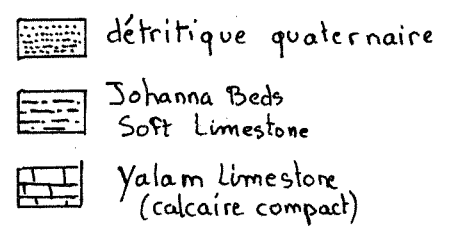 détritique quaternaire
Johanna Beds
Soft Limestone
Yalam Limestone
(calcaire compact)